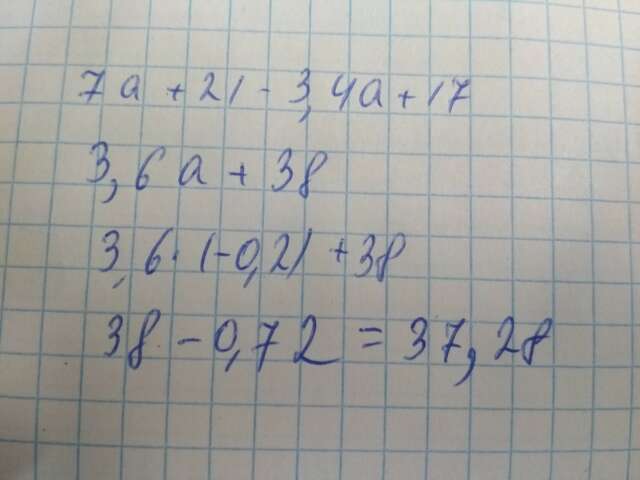 7a + 21 - 3,4a + 17
3,6a + 38
3,6 · (-0,2) + 38
38 - 0,72 = 37,28